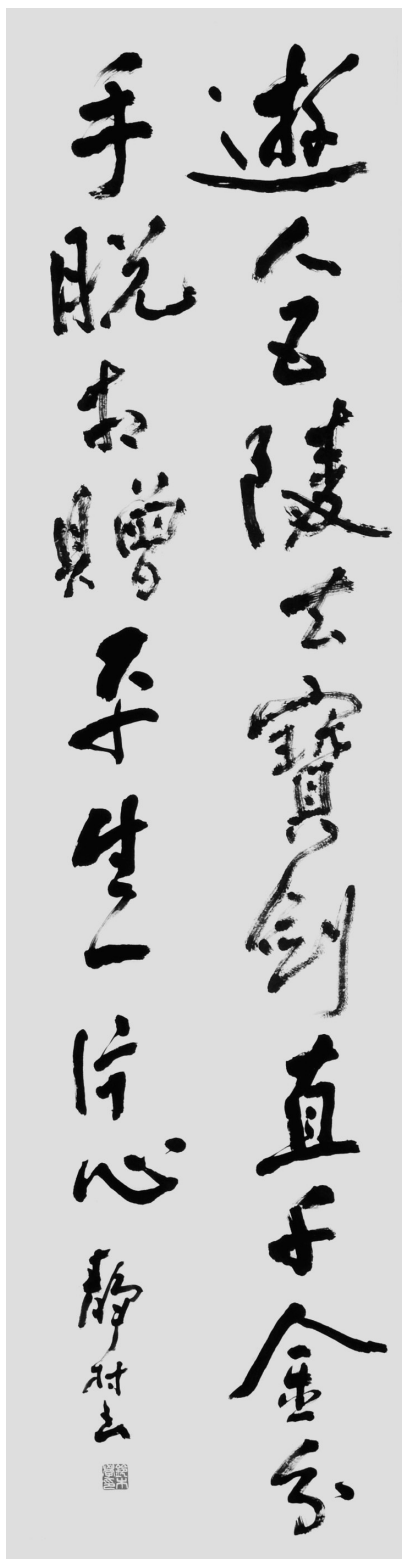 遊人五陵去寶劍直千金分
手脫相贈平生一片心
靜村書